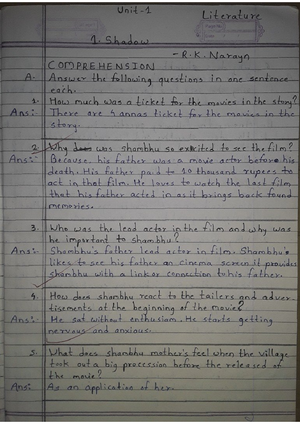 Unit-1
Literature
1. Shadow
- R.K. Narayn
COMPREHENSION
A. Answer the following questions in one sentence
each.
1. How much was a ticket for the movies in the story?
Ans:- There are 4 annas ticket for the movies in the
story.
2. Why was shambhu so exited to see the film?
Ans:- Because, his father was a movie actor before his
death. His father paid to 10 thousand rupees to
act in that film. He loves to watch the last film
that his father acted in as it brings back found
memories.
3. Who was the lead actor in the film and why was
he important to shambhu?
Ans:- Shambhu's father lead actor in film. Shambhu's
likes to see his father on cinema screen it provides
shambhu with a link or connection to his father.
4. How does shambhu react to the tailers and adver-
tisements at the beginning of the movie?
Ans:- He sat without enthusism. He starts getting
nervous and anxious.
5. What does shambhu mother's feel when the village
took out a big procession before the released of
the movie?
Ans: As an application of her.